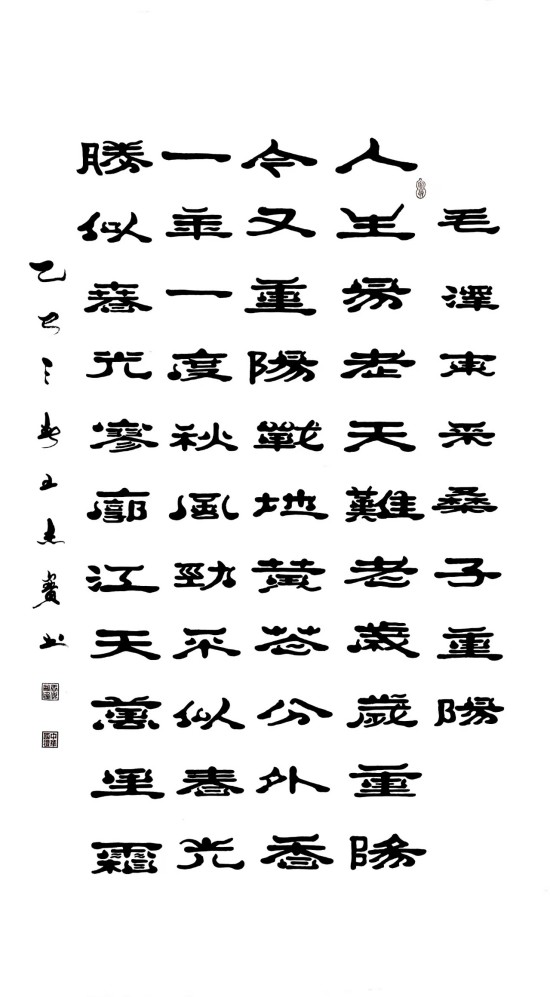 毛澤東采桑子重陽
人生易老天難老歲歲重陽
今又重陽戰地黃花分外香
一年一度秋風勁不似春光
勝似春光寥廓江天萬里霜
乙巳之春王书